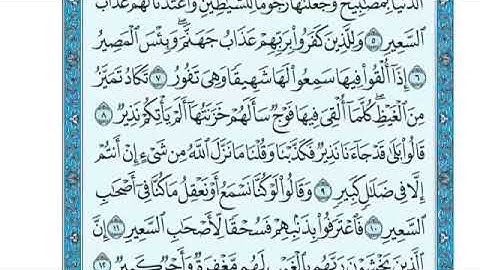 الدُّنْيَا بِمَصَٰبِيحَ وَجَعَلْنَٰهَا رُجُومًا لِّلشَّيَٰطِينِ وَأَعْتَدْنَا لَهُمْ عَذَابَ
السَّعِيرِ ٥ وَلِلَّذِينَ كَفَرُوا بِرَبِّهِمْ عَذَابُ جَهَنَّمَ وَبِئْسَ الْمَصِيرُ
٦ إِذَا أُلْقُوا فِيهَا سَمِعُوا لَهَا شَهِيقًا وَهِيَ تَفُورُ ٧ تَكَادُ تَمَيَّزُ
مِنَ الْغَيْظِ كُلَّمَا أُلْقِيَ فِيهَا فَوْجٌ سَأَلَهُمْ خَزَنَتُهَا أَلَمْ يَأْتِكُمْ نَذِيرٌ ٨
قَالُوا بَلَىٰ قَدْ جَاءَنَا نَذِيرٌ فَكَذَّبْنَا وَقُلْنَا مَا نَزَّلَ اللَّهُ مِن شَيْءٍ إِنْ أَنتُمْ
إِلَّا فِي ضَلَٰلٍ كَبِيرٍ ٩ وَقَالُوا لَوْ كُنَّا نَسْمَعُ أَوْ نَعْقِلُ مَا كُنَّا فِي أَصْحَٰبِ
السَّعِيرِ ١٠ فَاعْتَرَفُوا بِذَنبِهِمْ فَسُحْقًا لِّأَصْحَٰبِ السَّعِيرِ ١١ إِنَّ
الَّذِينَ يَخْشَوْنَ رَبَّهُم بِالْغَيْبِ لَهُم مَّغْفِرَةٌ وَأَجْرٌ كَبِيرٌ ١٢